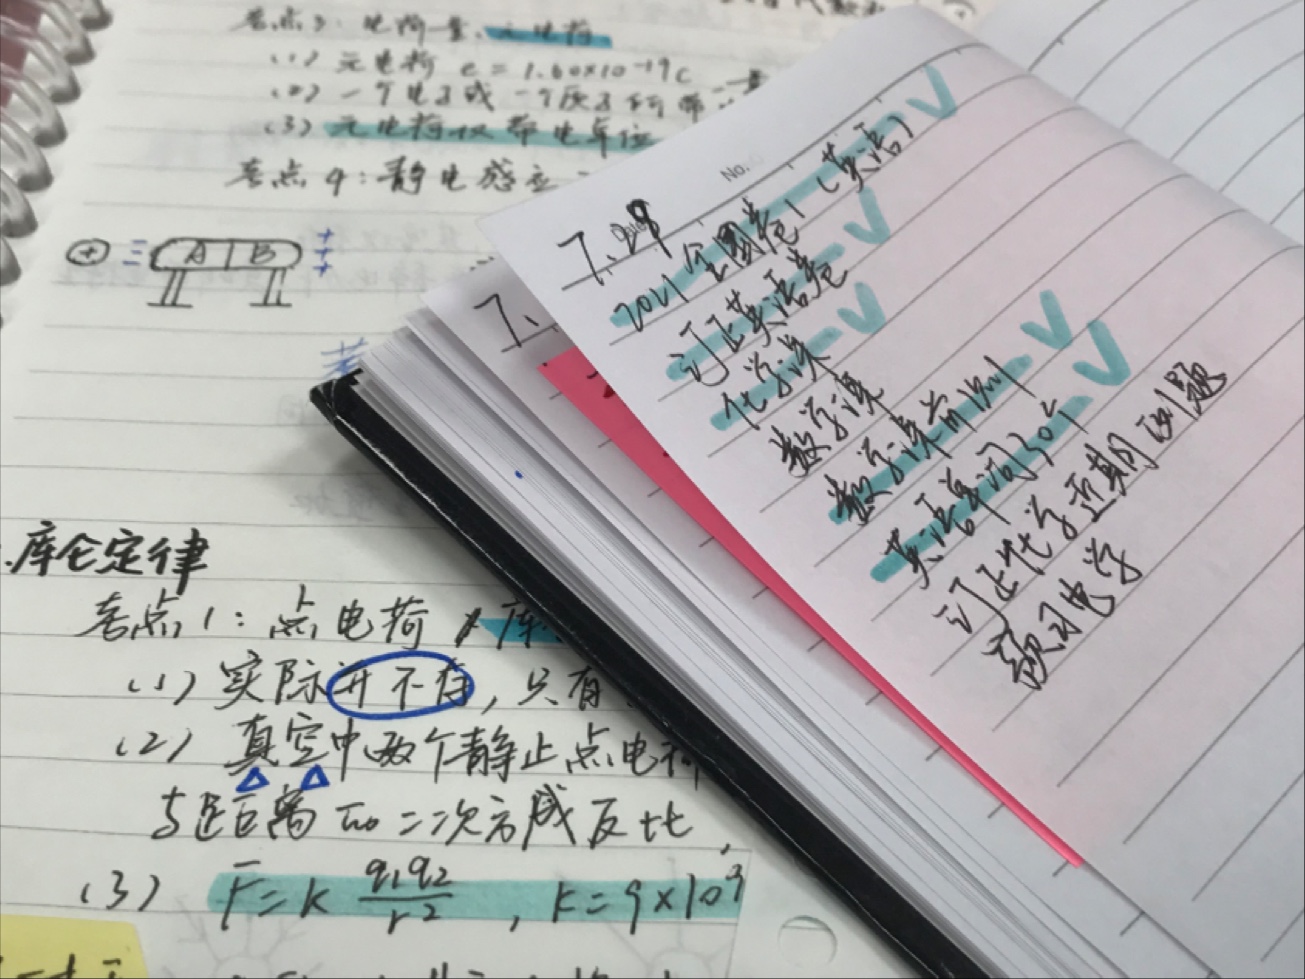 考点3：电荷量、元电荷
(1) 元电荷 e = 1.60×10⁻¹⁹C
(2) 一个电子或一个质子所带
(3) 元电荷仅带电单位
考点4：静电感应
+
A B
+
+
+
库仑定律
考点1：点电荷
(1) 实际并不存，只有
(2) 真空中两个静止点电荷
与距离的二次方成反比，
(3) F = k q₁q₂/r²，k = 9×10⁹
No.
7.29
2021全国卷1（英语）
订正英语卷
化学课
数学课
数学课前测
英语单词30个
订正化学近期的题
预习电学
7.